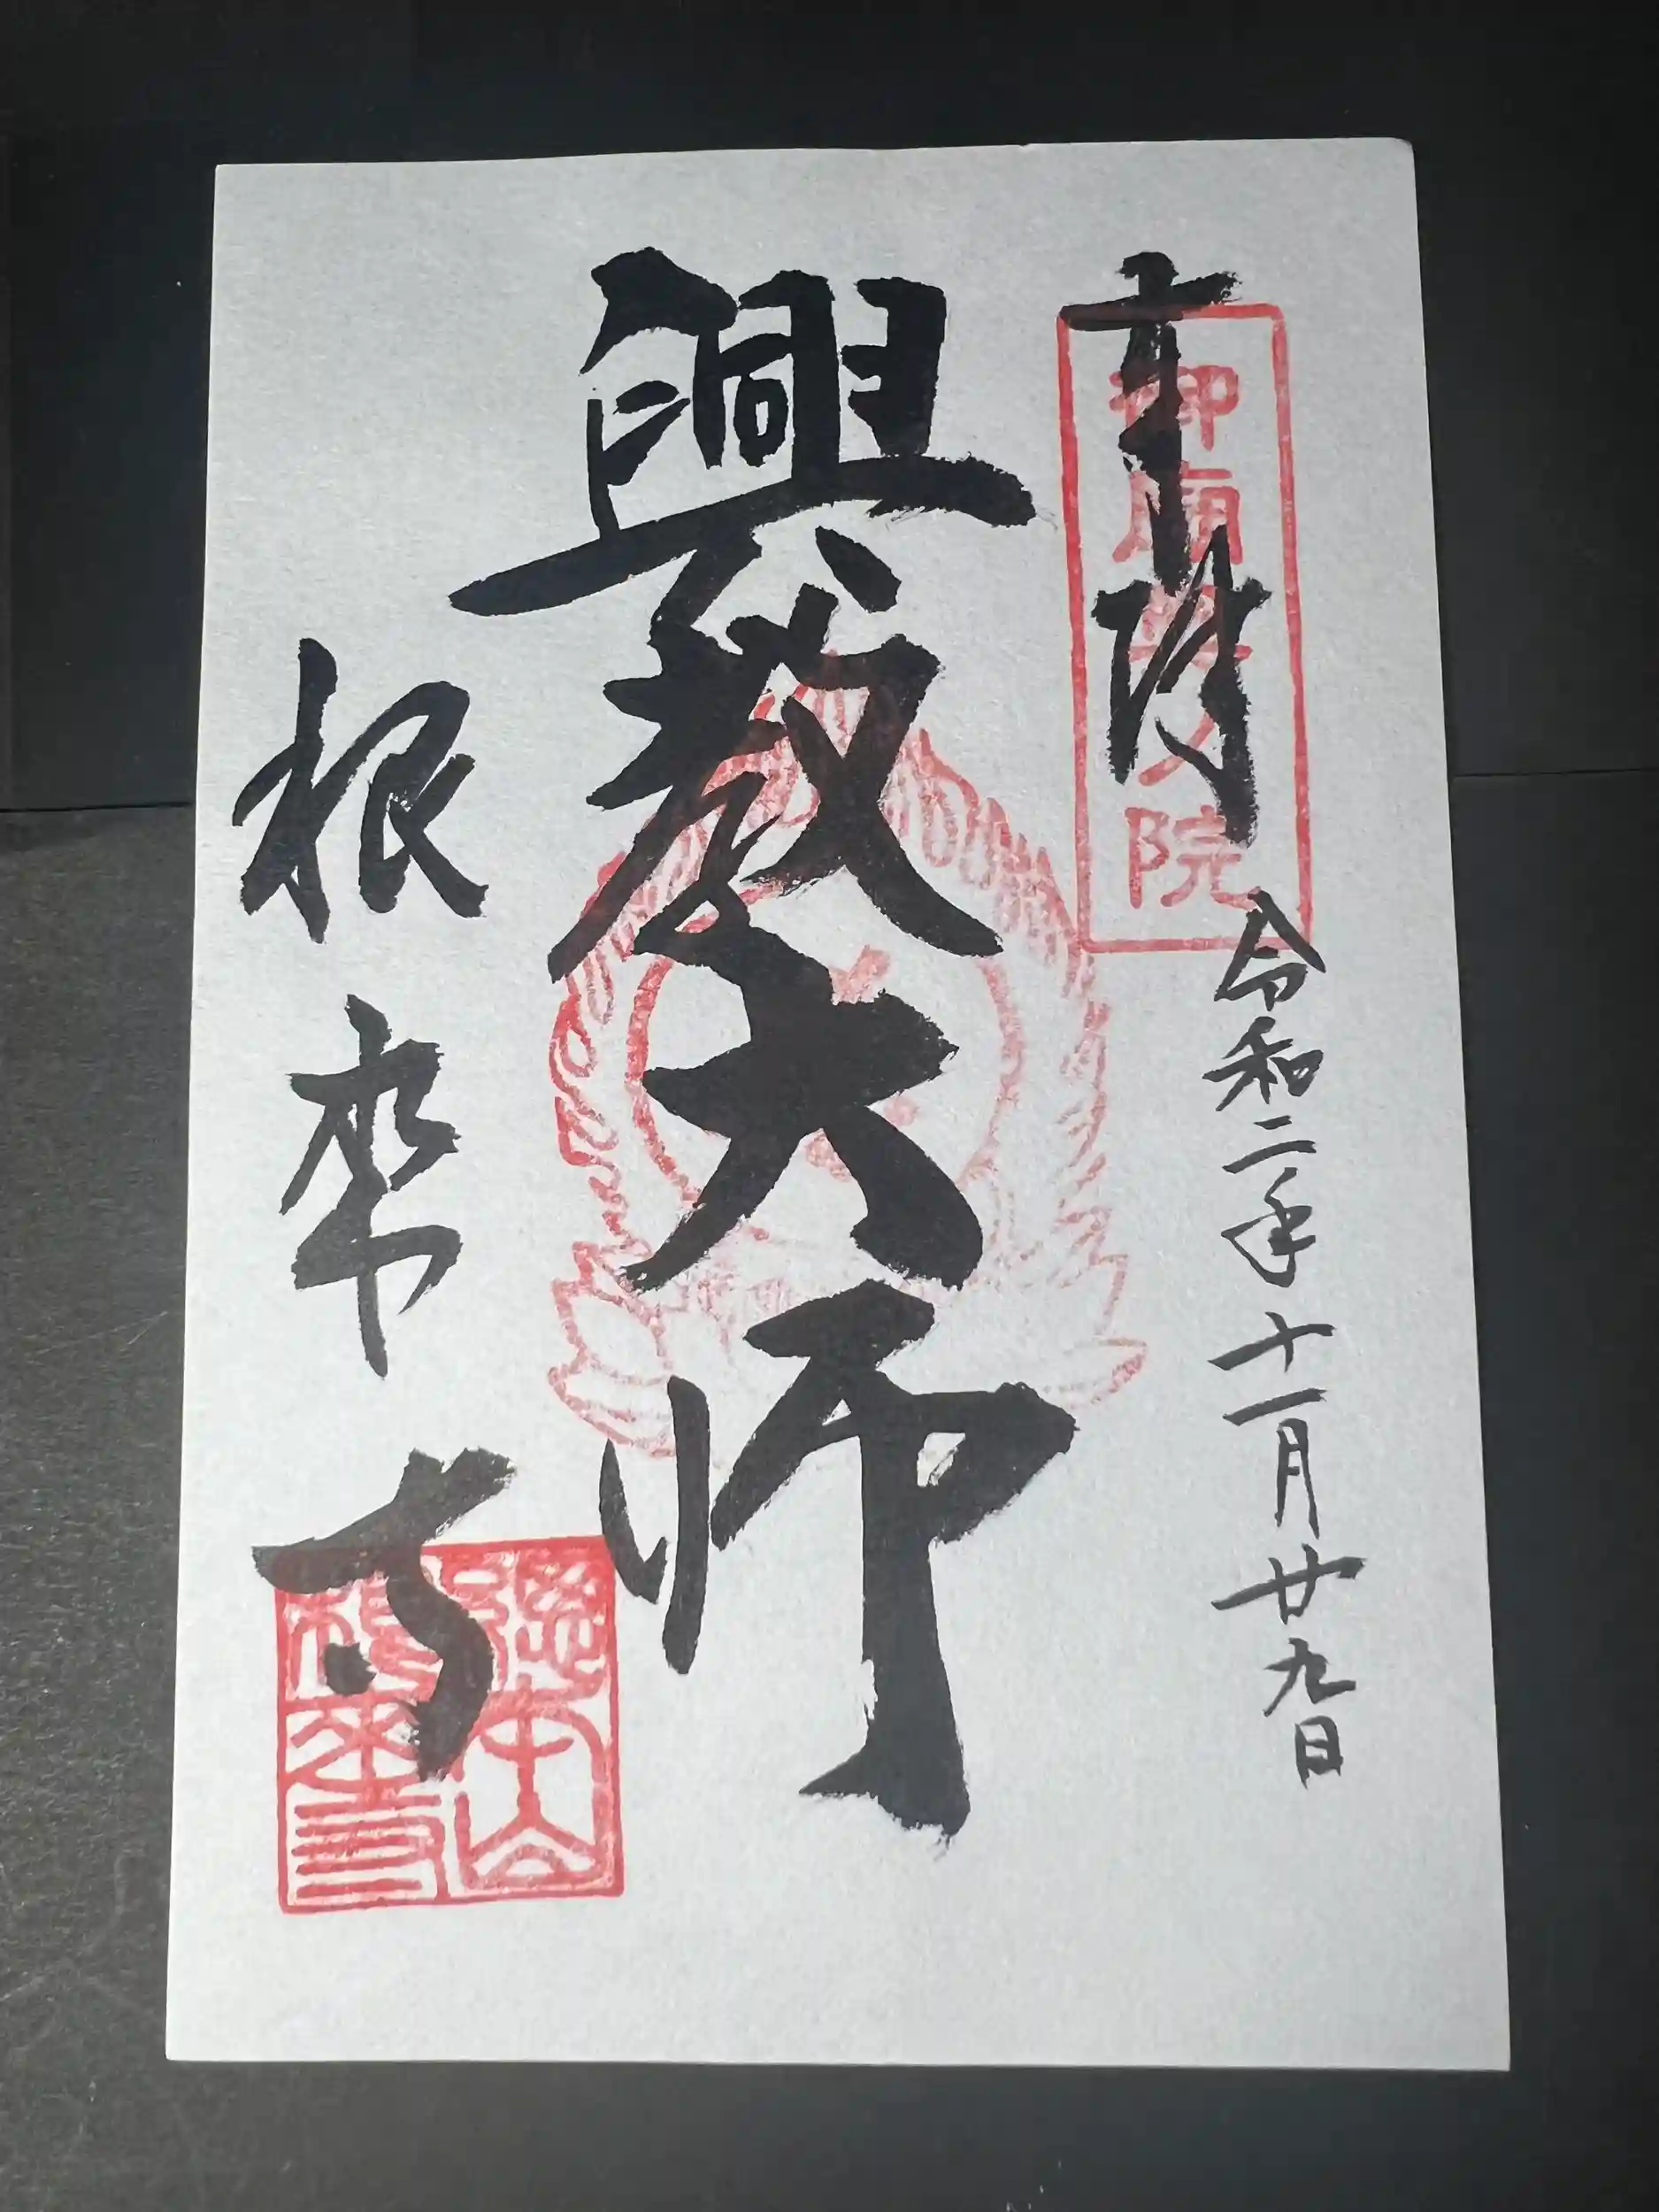 奉拝
御廟奥ノ院
令和二年十一月廿九日
興教大師
根来寺